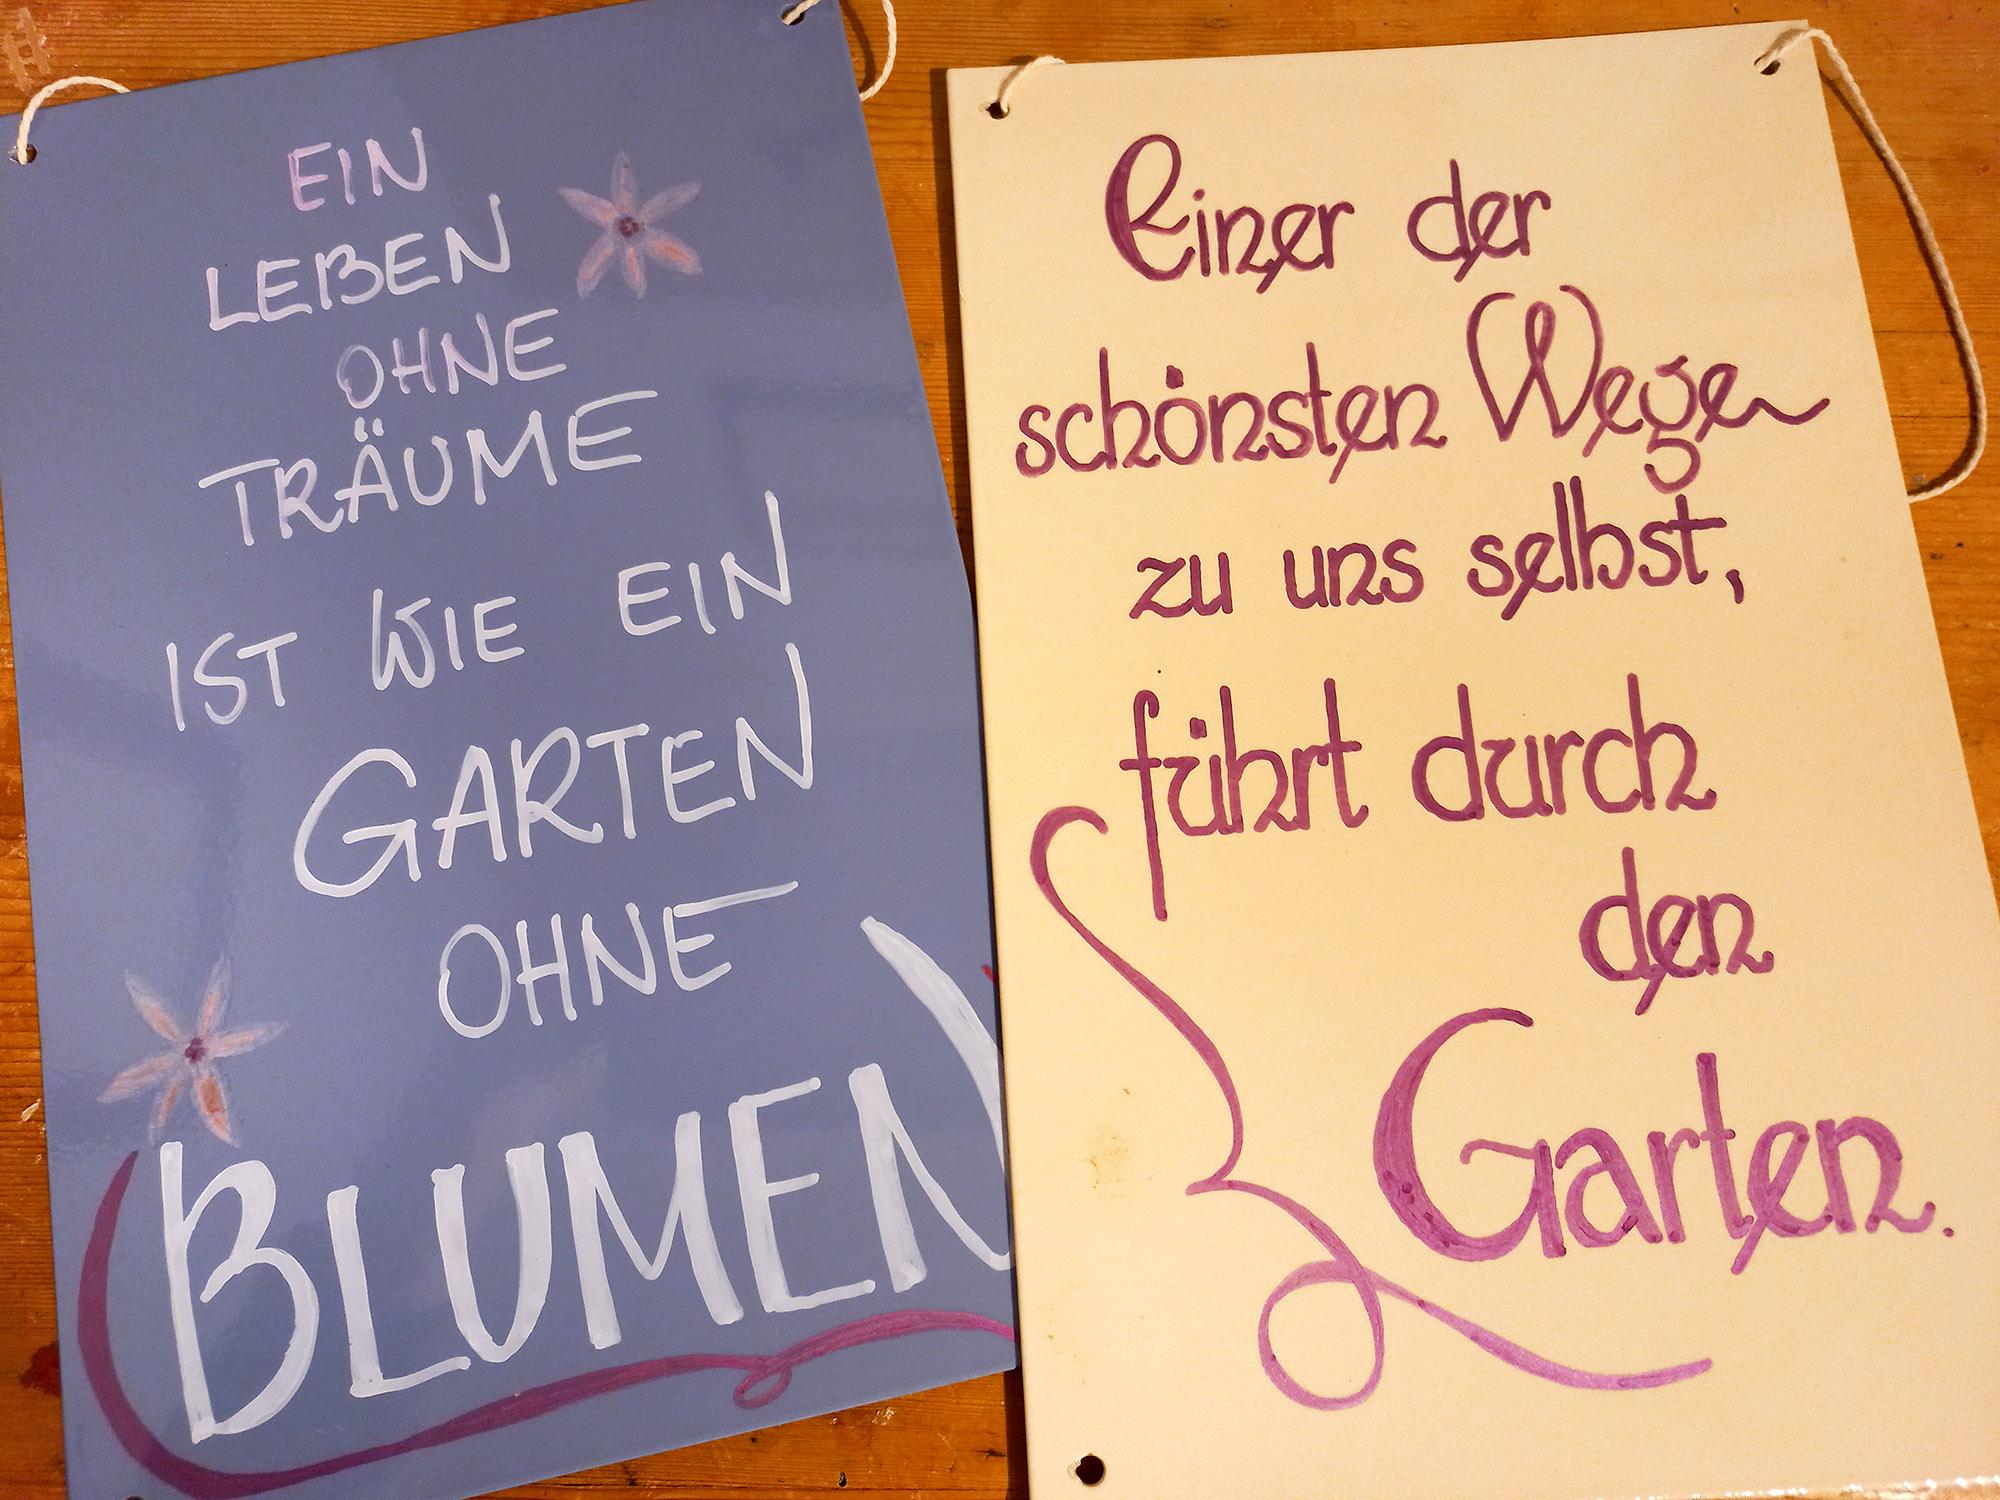 EIN
LEBEN
OHNE
TRÄUME
IST WIE EIN
GARTEN
OHNE
BLUMEN
Einer der
schönsten Wege
zu uns selbst,
führt durch
den
Garten.